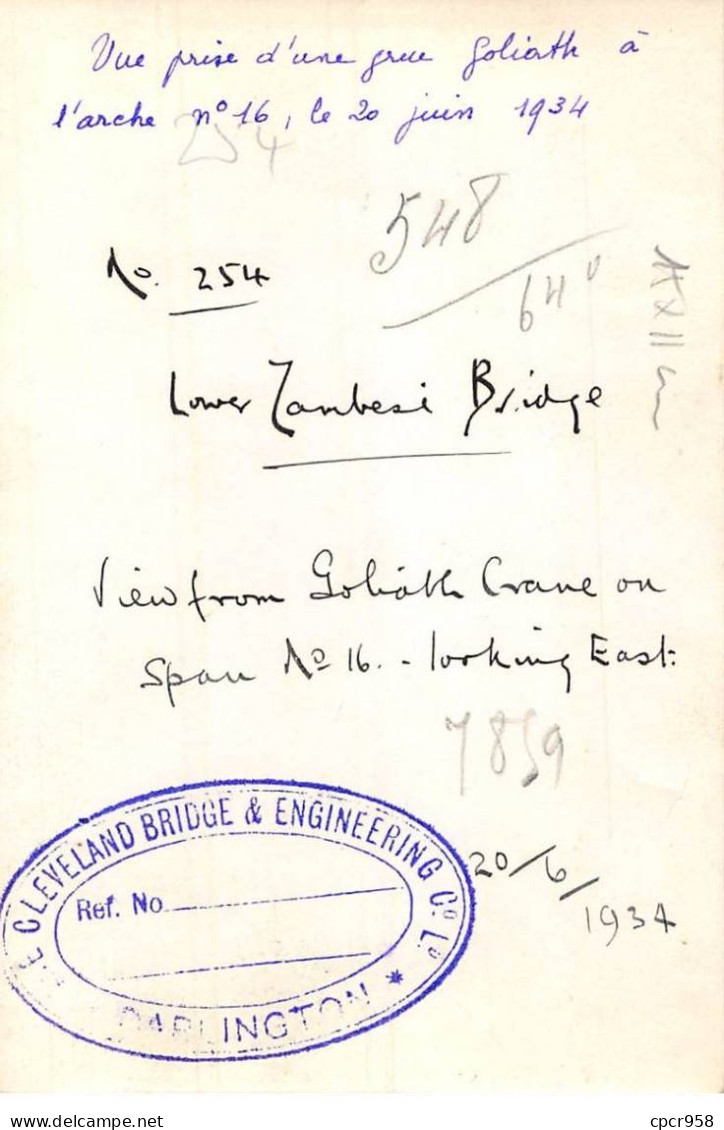 Vue prise d'une grue Goliath à
l'arche n° 16, le 20 juin 1934
254
548
64
No. 254
Lower Zambesi Bridge
View from Goliath Crane on
Span No 16. - looking East.
7859
20/6/1934
CLEVELAND BRIDGE & ENGINEERING Co. Ld.
Ref. No
DARLINGTON *
cpcr958